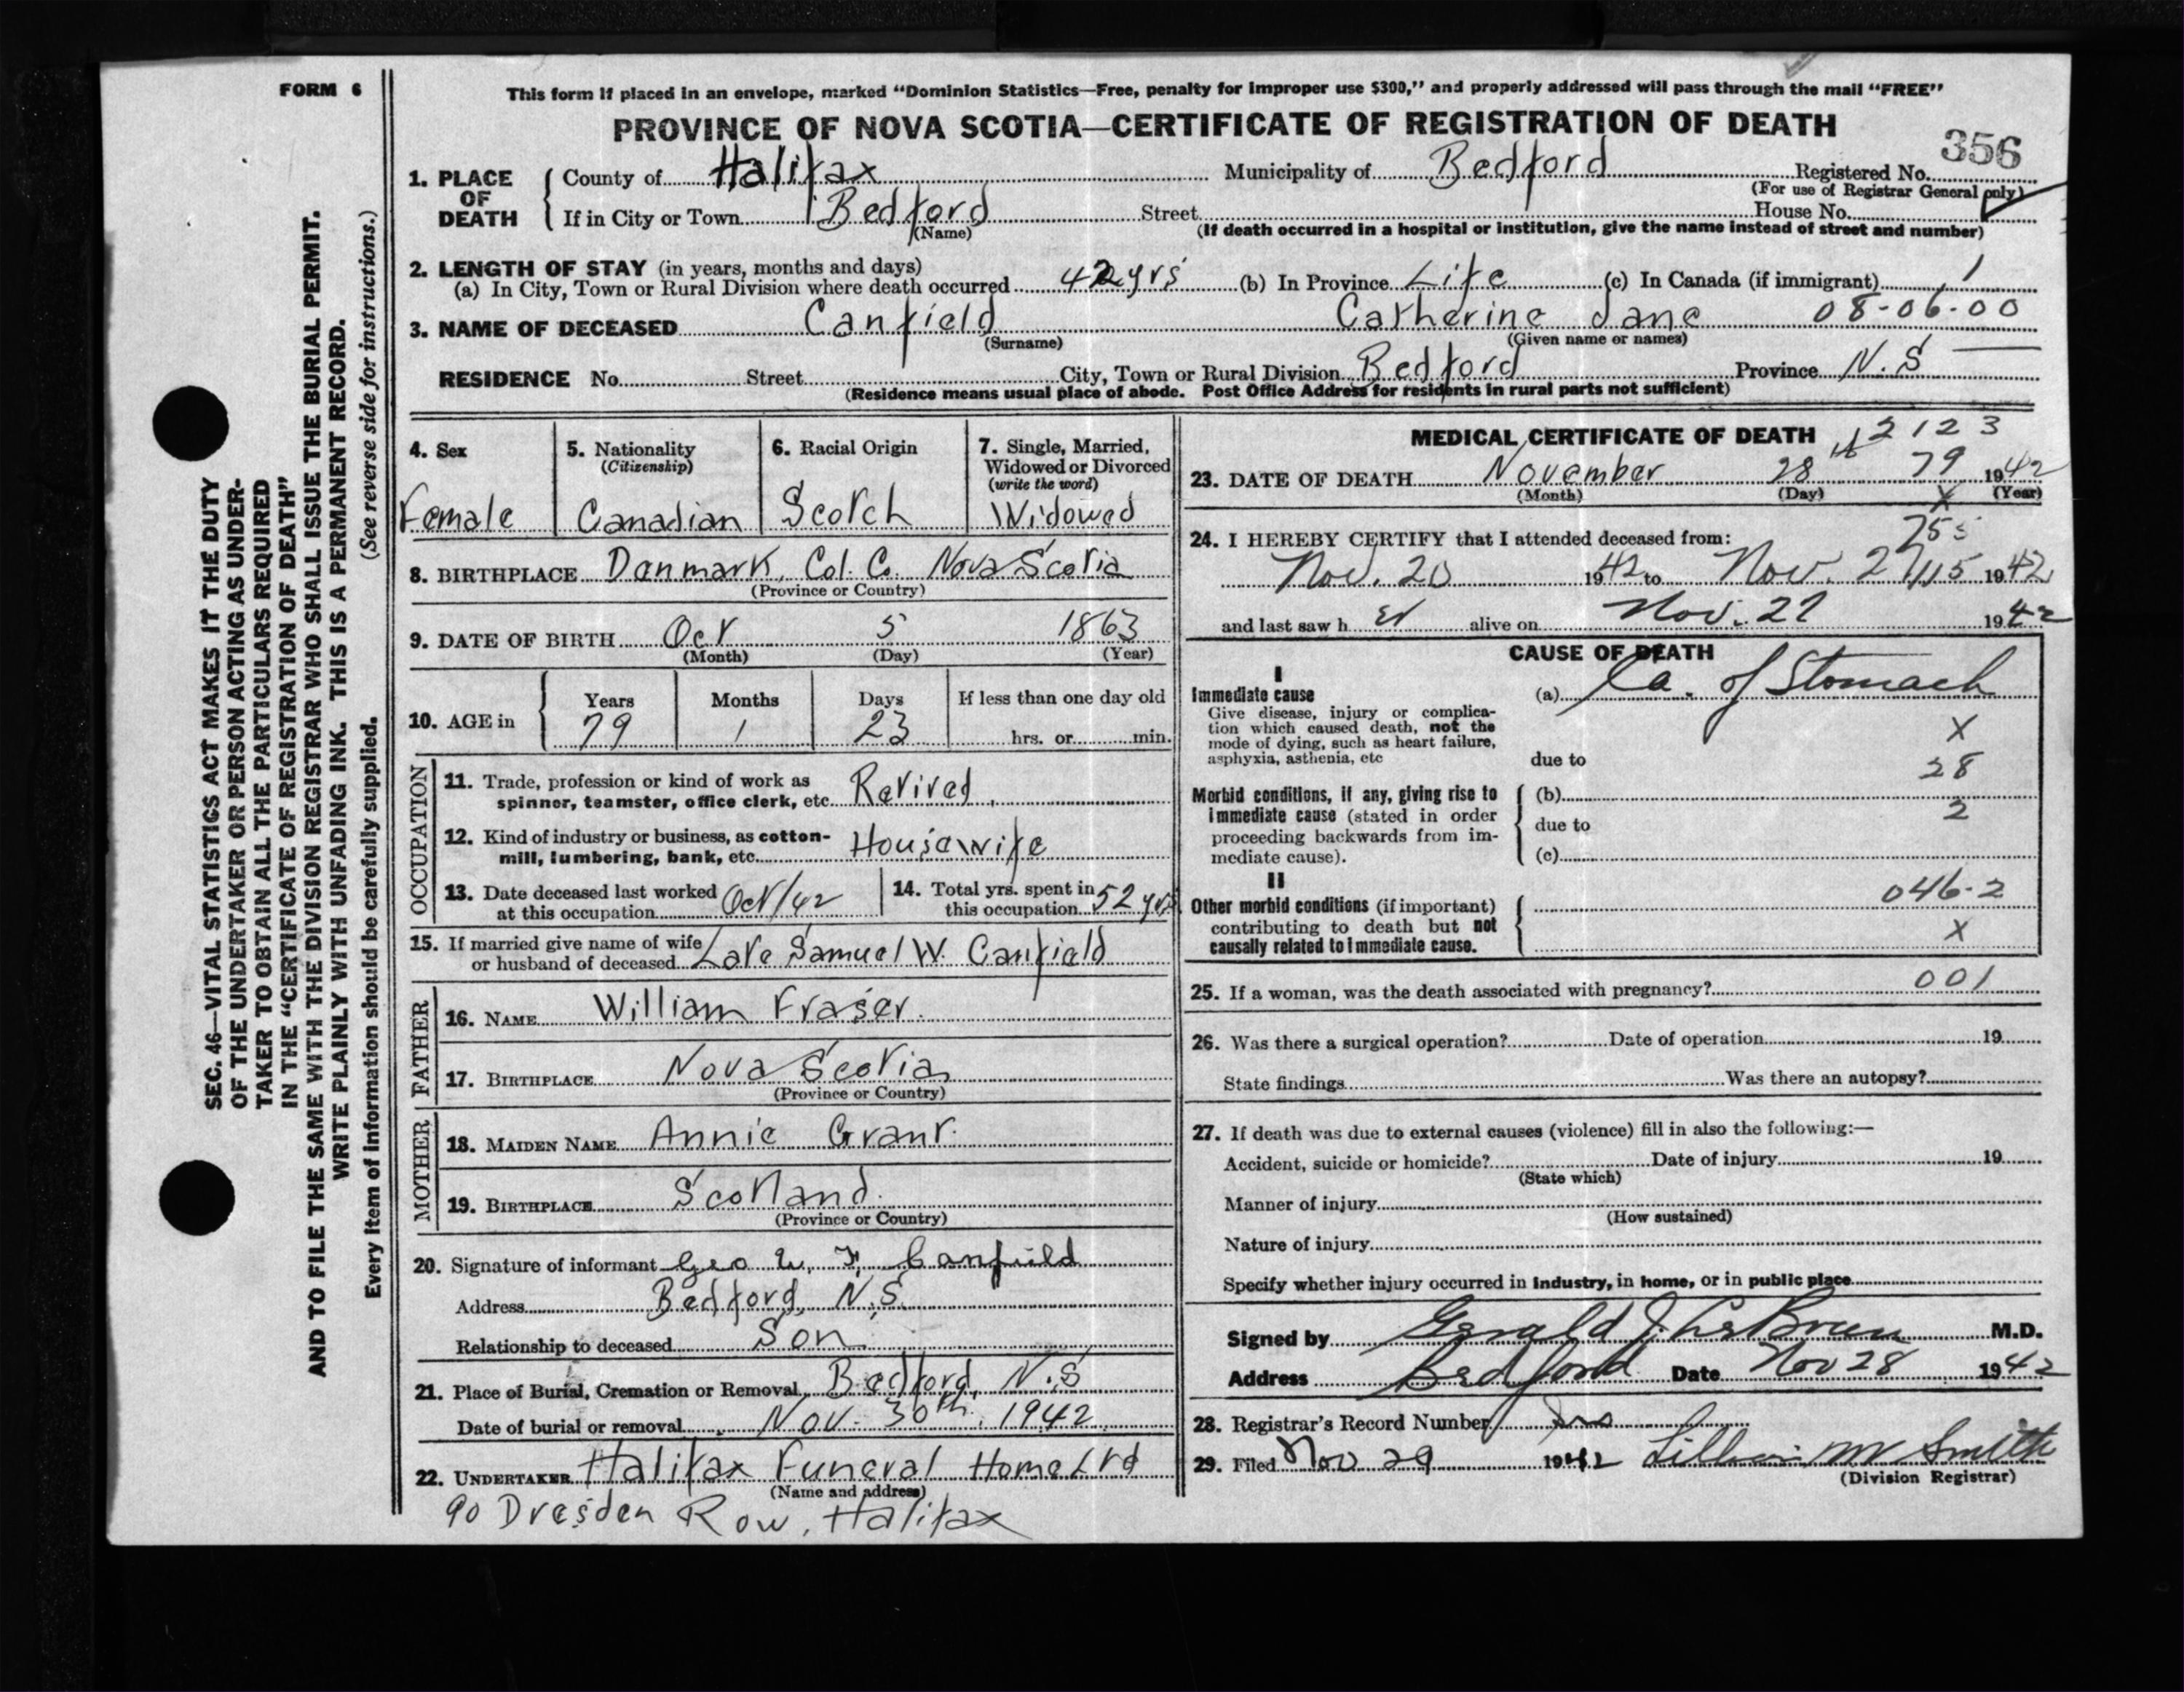 FORM 6
This form if placed in an envelope, marked "Dominion Statistics—Free, penalty for improper use $300," and properly addressed will pass through the mail "FREE"
PROVINCE OF NOVA SCOTIA—CERTIFICATE OF REGISTRATION OF DEATH
356
1. PLACE OF DEATH County of Halifax Municipality of Bedford Registered No.
(For use of Registrar General only)
If in City or Town Bedford Street House No.
(Name) (If death occurred in a hospital or institution, give the name instead of street and number)
2. LENGTH OF STAY (in years, months and days)
(a) In City, Town or Rural Division where death occurred 42 yrs (b) In Province Life (c) In Canada (if immigrant) 1
3. NAME OF DECEASED Canfield Catherine Jane 08-06-00
(Surname) (Given name or names)
RESIDENCE No. Street City, Town or Rural Division Bedford Province N.S
(Residence means usual place of abode. Post Office Address for residents in rural parts not sufficient)
4. Sex 5. Nationality 6. Racial Origin 7. Single, Married,
(Citizenship) Widowed or Divorced
(write the word)
Female Canadian Scotch Widowed
8. BIRTHPLACE Denmark, Col. Co. Nova Scotia
(Province or Country)
9. DATE OF BIRTH Oct 5 1863
(Month) (Day) (Year)
10. AGE in Years Months Days If less than one day old
79 1 23 hrs. or min.
OCCUPATION
11. Trade, profession or kind of work as
spinner, teamster, office clerk, etc. Retired
12. Kind of industry or business, as cotton-
mill, lumbering, bank, etc. Housewife
13. Date deceased last worked
at this occupation Oct/42
14. Total yrs. spent in
this occupation 52 yrs
15. If married give name of wife
or husband of deceased Late Samuel W. Canfield
FATHER
16. NAME William Fraser.
17. BIRTHPLACE Nova Scotia
(Province or Country)
MOTHER
18. MAIDEN NAME Annie Grant.
19. BIRTHPLACE Scotland.
(Province or Country)
20. Signature of informant Geo W. F. Canfield
Address Bedford, N.S.
Relationship to deceased Son
21. Place of Burial, Cremation or Removal Bedford, N.S
Date of burial or removal Nov. 30th, 1942
22. UNDERTAKER Halifax Funeral Home Ltd
(Name and address)
90 Dresden Row, Halifax
MEDICAL CERTIFICATE OF DEATH 2123
23. DATE OF DEATH November 28th 79 1942
(Month) (Day) X (Year)
24. I HEREBY CERTIFY that I attended deceased from:
Nov. 20 1942 to Nov. 27 1942
and last saw h er alive on Nov. 27 1942
CAUSE OF DEATH
I
Immediate cause (a) Ca. of Stomach
Give disease, injury or complica-
tion which caused death, not the
mode of dying, such as heart failure,
asphyxia, asthenia, etc
X
due to 28
Morbid conditions, if any, giving rise to (b)
immediate cause (stated in order 2
proceeding backwards from im- due to
mediate cause). (c)
II
Other morbid conditions (if important) 046-2
contributing to death but not
causally related to immediate cause. X
25. If a woman, was the death associated with pregnancy? 001
26. Was there a surgical operation? Date of operation 19
State findings Was there an autopsy?
27. If death was due to external causes (violence) fill in also the following:—
Accident, suicide or homicide? Date of injury 19
(State which)
Manner of injury
(How sustained)
Nature of injury
Specify whether injury occurred in industry, in home, or in public place
Signed by Gerald J. LeBrun M.D.
Address Bedford Date Nov 28 1942
28. Registrar's Record Number
29. Filed Nov 29 1942 Lillian M Smith
(Division Registrar)
SEC. 46—VITAL STATISTICS ACT MAKES IT THE DUTY
OF THE UNDERTAKER OR PERSON ACTING AS UNDER-
TAKER TO OBTAIN ALL THE PARTICULARS REQUIRED
IN THE "CERTIFICATE OF REGISTRATION OF DEATH"
AND TO FILE THE SAME WITH THE DIVISION REGISTRAR WHO SHALL ISSUE THE BURIAL PERMIT.
WRITE PLAINLY WITH UNFADING INK. THIS IS A PERMANENT RECORD.
Every item of information should be carefully supplied. (See reverse side for instructions.)